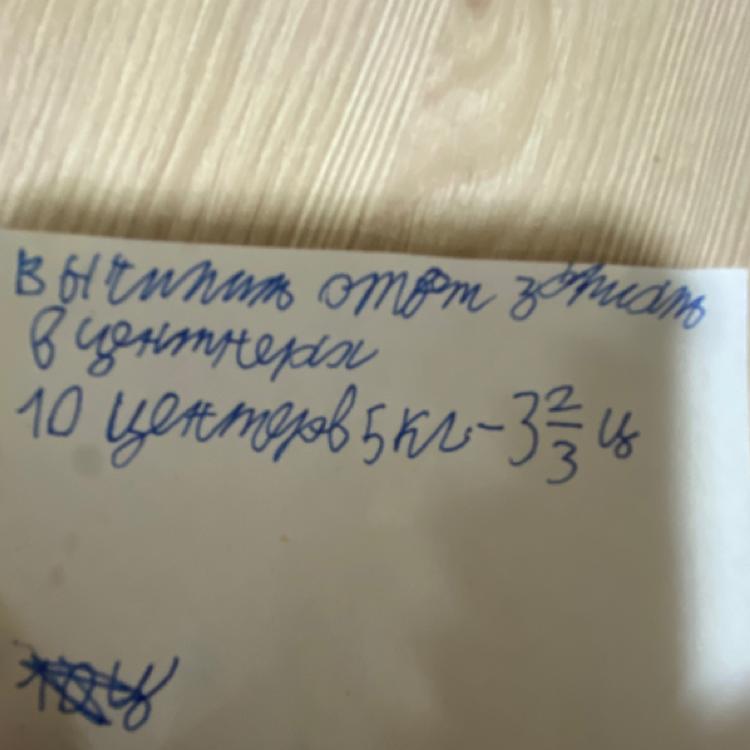 вычилить ответ записать
в центнерах
10 центеров 5 кг - 3 2/3 ц